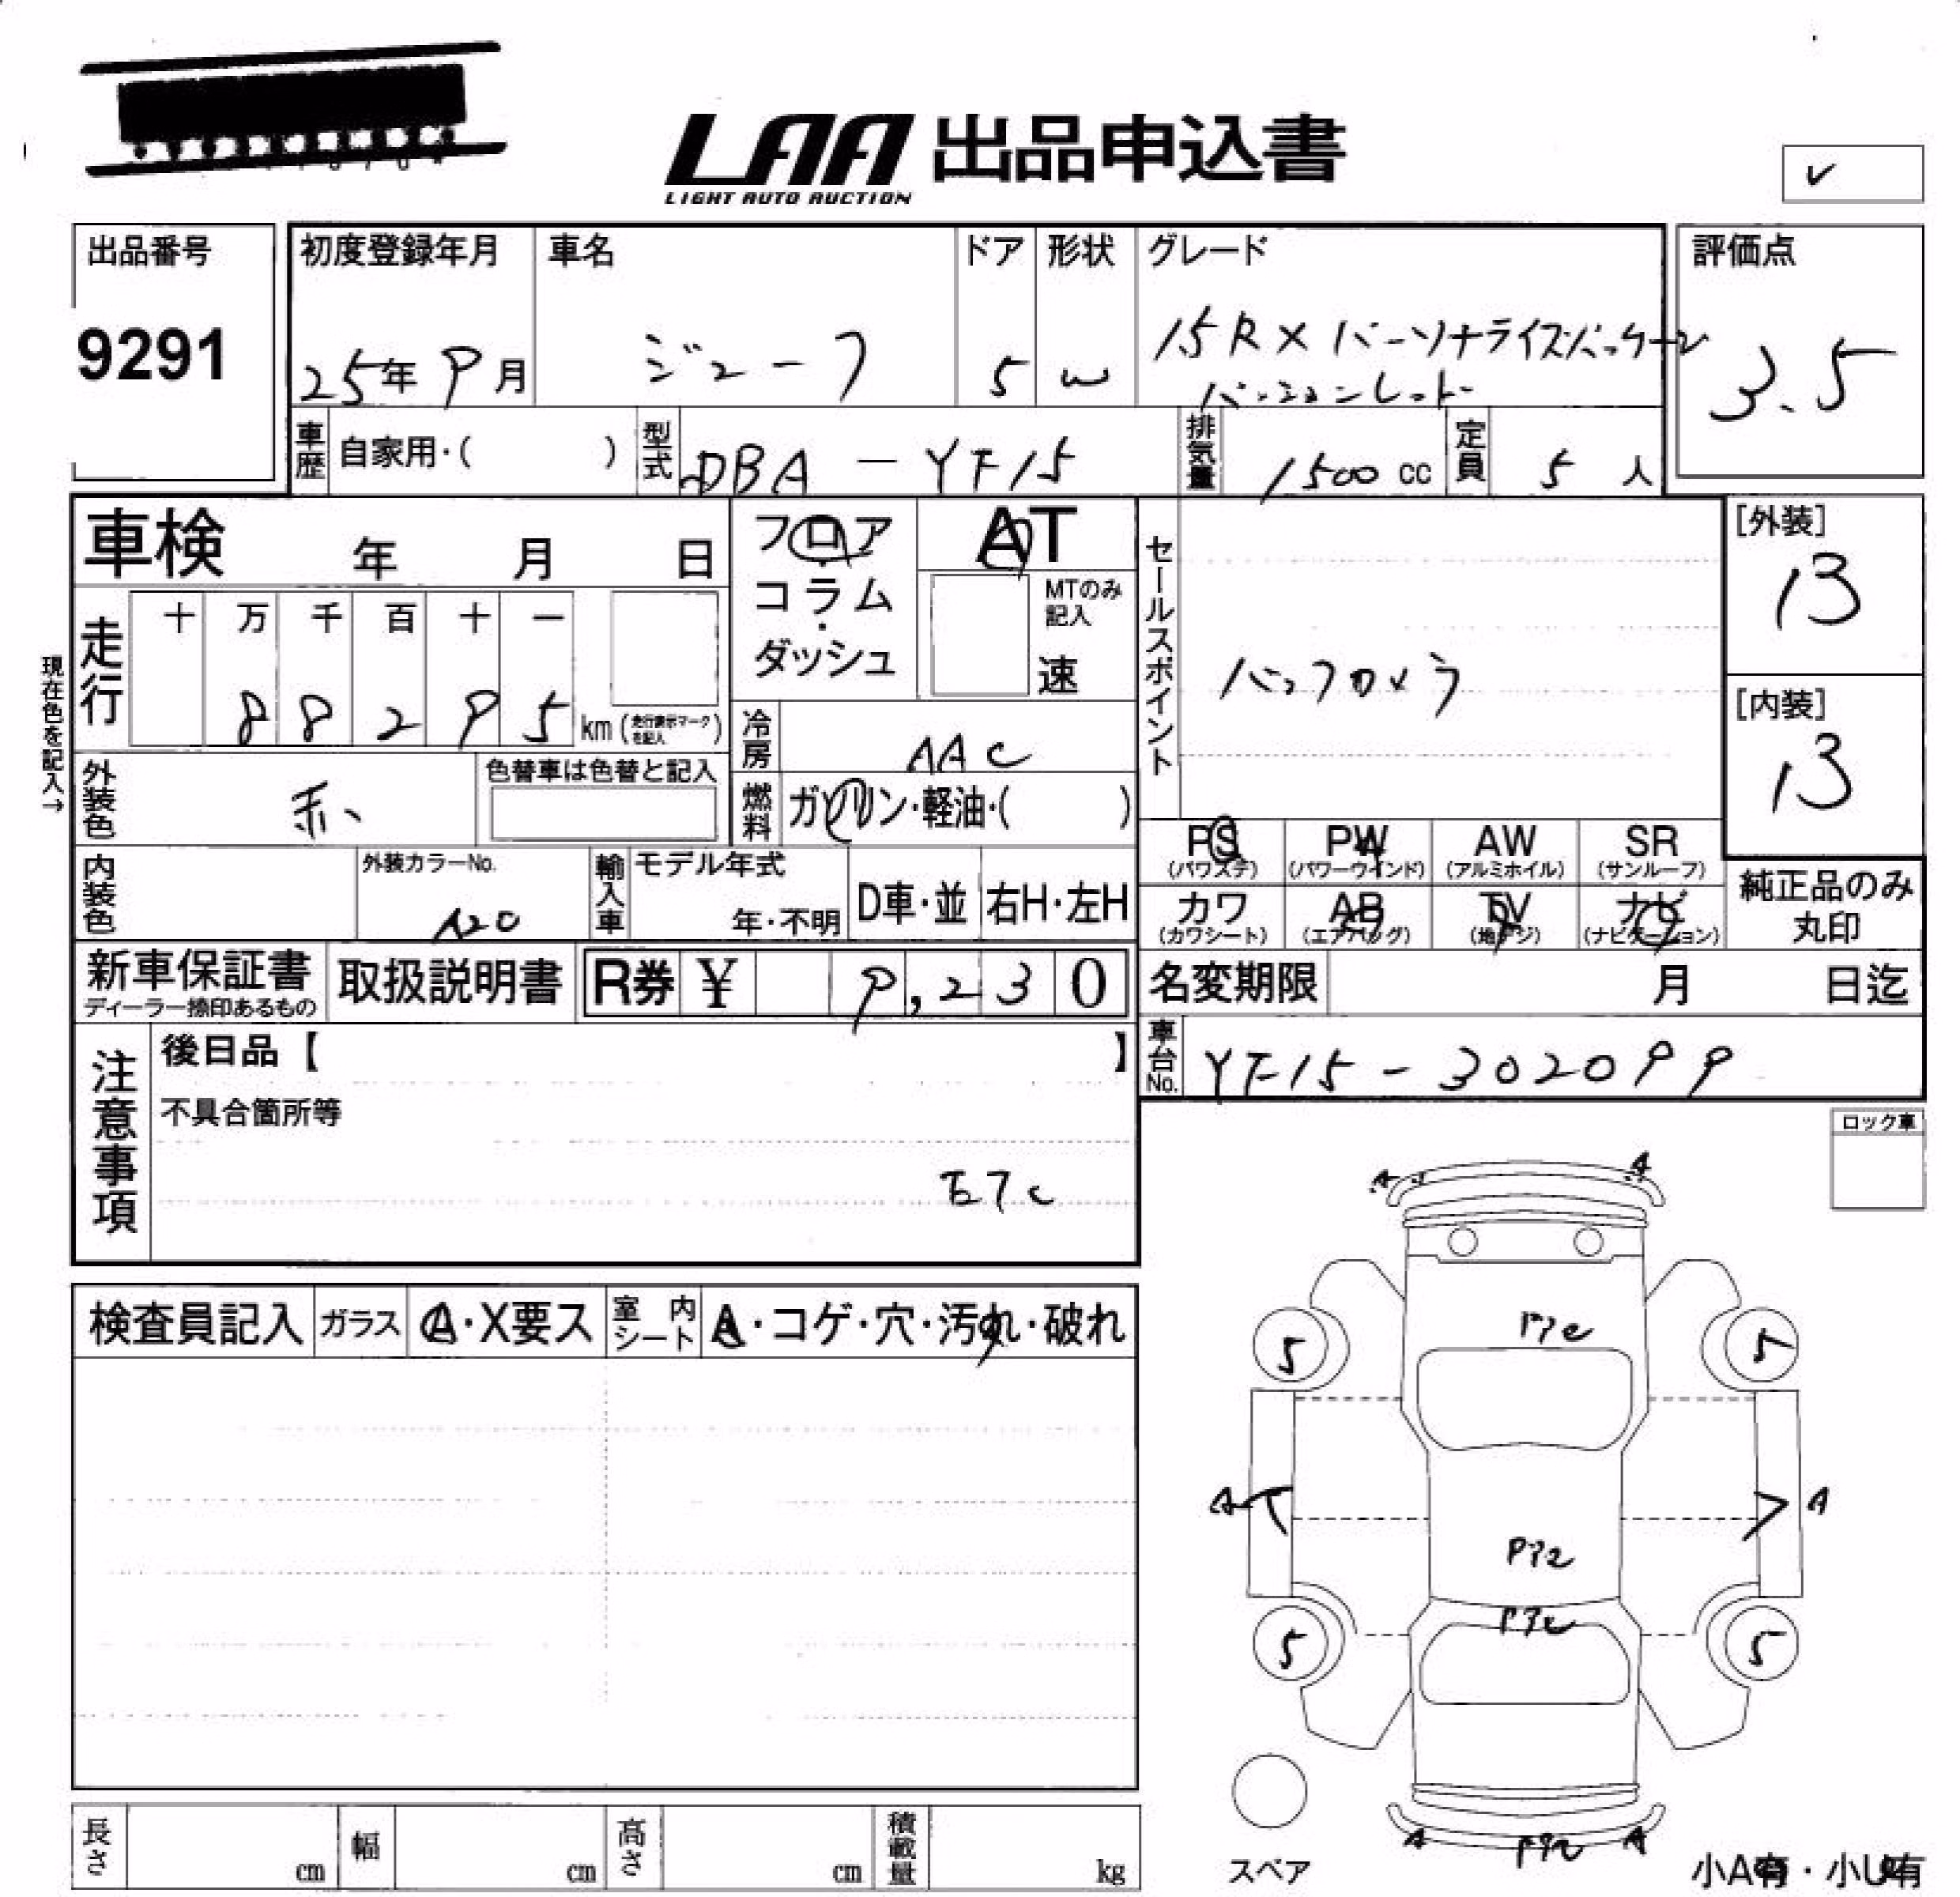 LAA 出品申込書
LIGHT AUTO AUCTION
出品番号
9291
初度登録年月
25年 9月
車名
ジューク
ドア
5
形状
W
グレード
15RX パーソナライズパッケージ
評価点
3.5
車歴 自家用・( )
型式 DBA-YF15
排気量 1500 cc
定員 5 人
車検 年 月 日
フロア
コラム
・
ダッシュ
AT
MTのみ
記入
速
セールスポイント
バックカメラ
[外装]
13
[内装]
13
現在色を記入→
走行 十 万 千 百 十 一
88295 km (走行表示マークを記入)
冷房 AAC
外装色 赤
色替車は色替と記入
燃料 ガソリン・軽油・( )
内装色
外装カラーNo.
A20
輸入車 モデル年式
年・不明
D車・並
右H・左H
PS (パワステ)
PW (パワーウインド)
AW (アルミホイル)
SR (サンルーフ)
カワ (カワシート)
AB (エアバッグ)
TV (地デジ)
ナビ (ナビゲーション)
純正品のみ
丸印
新車保証書
ディーラー捺印あるもの
取扱説明書
R券 ¥ 9,230
名変期限 月 日迄
車台No. YF15-302099
注意事項
後日品【 】
不具合箇所等
ETC
ロック車
検査員記入 ガラス A・X要ス 室内シート A・コゲ・穴・汚れ・破れ
A A
5 5
A A
5 5
A A
スペア
小A有・小U有
長さ cm 幅 cm 高さ cm 積載量 kg